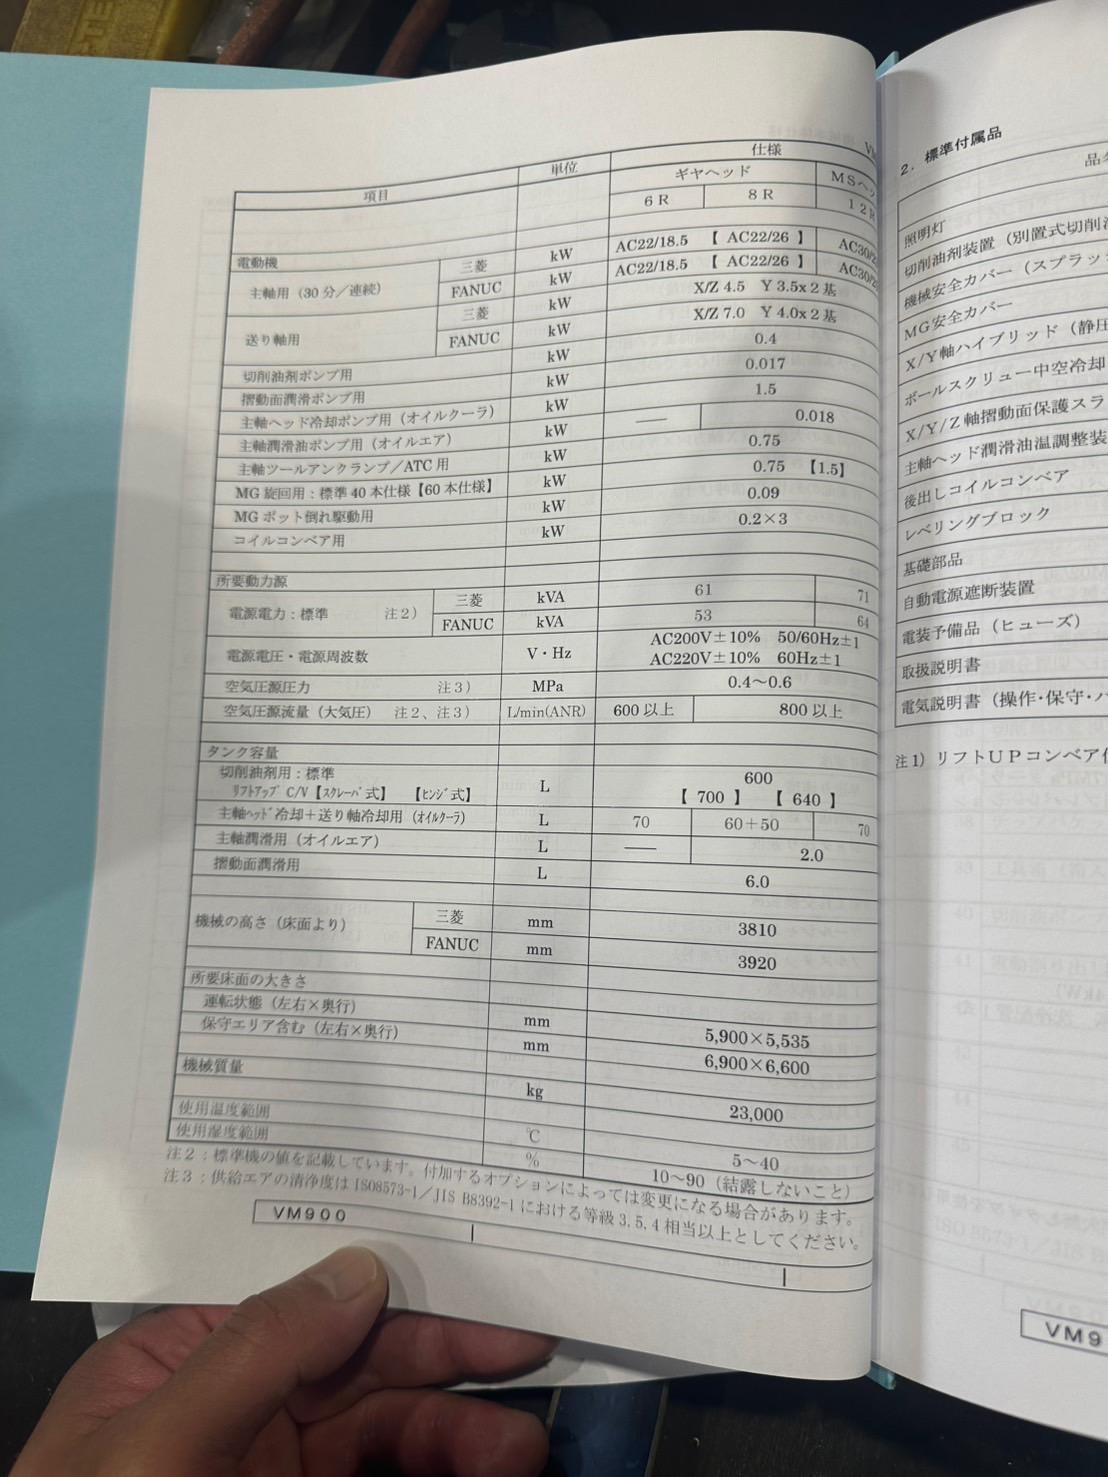 項目 単位 仕様
ギヤヘッド MSヘッ
6R 8R 12R
電動機
主軸用（30分／連続） 三菱 kW AC22/18.5 【 AC22/26 】 AC30/2
FANUC kW AC22/18.5 【 AC22/26 】 AC30/2
送り軸用 三菱 kW X/Z 4.5 Y 3.5x 2 基
FANUC kW X/Z 7.0 Y 4.0x 2 基
切削油剤ポンプ用 kW 0.4
摺動面潤滑ポンプ用 kW 0.017
主軸ヘッド冷却ポンプ用（オイルクーラ） kW 1.5
主軸潤滑油ポンプ用（オイルエア） kW ― 0.018
主軸ツールアンクランプ／ATC 用 kW 0.75
MG 旋回用：標準 40 本仕様【60 本仕様】 kW 0.75 【1.5】
MG ポット倒れ駆動用 kW 0.09
コイルコンベア用 kW 0.2×3
所要動力源
電源電力：標準 注２） 三菱 kVA 61 71
FANUC kVA 53 64
電源電圧・電源周波数 V・Hz AC200V±10% 50/60Hz±1
AC220V±10% 60Hz±1
空気圧源圧力 注３） MPa 0.4～0.6
空気圧源流量（大気圧） 注２、注３） L/min(ANR) 600 以上 800 以上
タンク容量
切削油剤用：標準 L 600
ﾘﾌﾄｱｯﾌﾟ C/V【ｽｸﾚｰﾊﾟ式】 【ﾋﾝｼﾞ式】 【 700 】 【 640 】
主軸ﾍｯﾄﾞ冷却＋送り軸冷却用（ｵｲﾙｸｰﾗ） L 70 60＋50 70
主軸潤滑用（オイルエア） L ― 2.0
摺動面潤滑用 L 6.0
機械の高さ（床面より） 三菱 mm 3810
FANUC mm 3920
所要床面の大きさ
運転状態（左右×奥行） mm 5,900×5,535
保守エリア含む（左右×奥行） mm 6,900×6,600
機械質量 kg 23,000
使用温度範囲 ℃ 5～40
使用湿度範囲 % 10～90（結露しないこと）
注２：標準機の値を記載しています。付加するオプションによっては変更になる場合があります。
注３：供給エアの清浄度は ISO8573-1／JIS B8392-1 における等級 3.5.4 相当以上としてください。
VM900
２．標準付属品
品名
照明灯
切削油剤装置（別置式切削油
機械安全カバー（スプラッ
MG安全カバー
X/Y軸ハイブリッド（静圧
ボールスクリュー中空冷却
X/Y/Z軸摺動面保護スラ
主軸ヘッド潤滑油温調整装
後出しコイルコンベア
レベリングブロック
基礎部品
自動電源遮断装置
電装予備品（ヒューズ）
取扱説明書
電気説明書（操作・保守・パ
注1）リフトＵＰコンベア仕
VM9